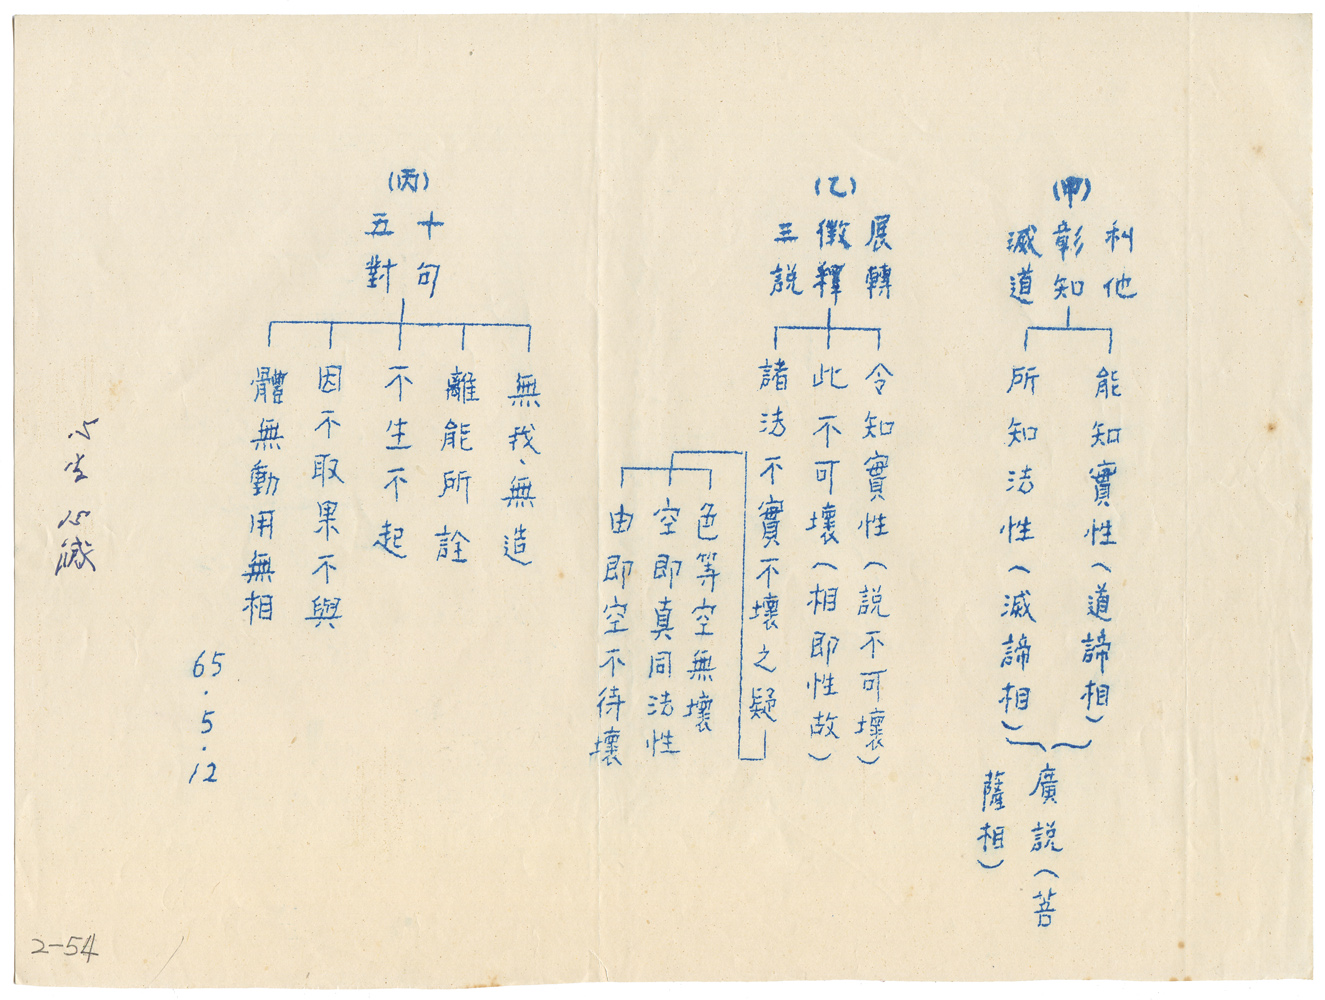 (甲)
利他
彰知
滅道
能知實性(道諦相)
所知法性(滅諦相)
廣說(菩
薩相)
(乙)
展轉
徵釋
三說
令知實性(說不可壞)
此不可壞(相即性故)
諸法不實不壞之疑
色等空無壞
空即真同法性
由即空不待壞
(丙)
十句
五對
無我、無造
離能所詮
不生不起
因不取果不與
體無動用無相
65.5.12
心生心滅
2-54